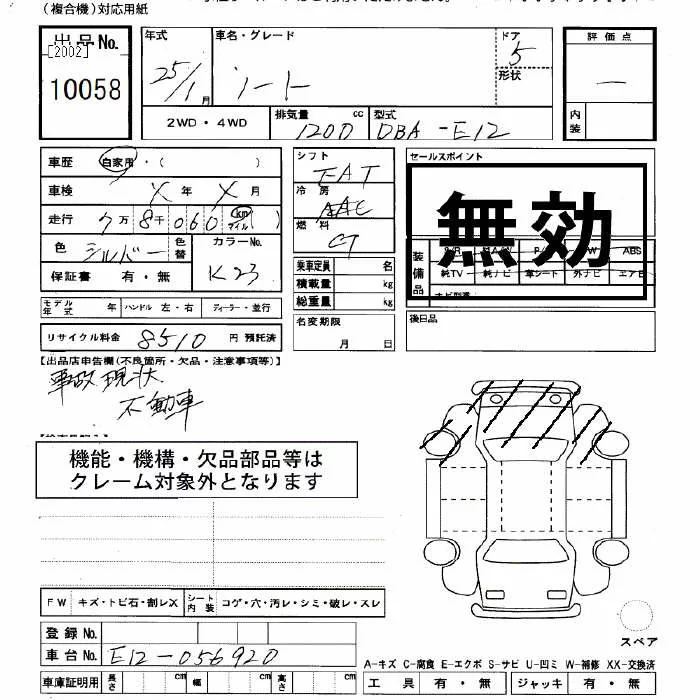 (複合機)対応用紙
出品No.
[2002]
10058
年式
25/1月
車名・グレード
ノート
ドア
5
形状
評価点
—
内装
2WD・4WD
排気量 cc
1200
型式
DBA-E12
車歴 自家用・( )
車検 X年 X月
走行 7万8千060 km マイル ( )
色 シルバー 色替
カラーNo.
K23
保証書 有・無
シフト
FAT
冷房
AAC
燃料
乗車定員 名
積載量 kg
総重量 kg
セールスポイント
無効
装備品
ABS
純TV 純ナビ 車シート 外ナビ エアB
モデル年式 年 ハンドル 左・右 ディーラー・並行
リサイクル料金 8510 円 預託済
名変期限
月 日
後日品
【出品店申告欄(不良箇所・欠品・注意事項等)】
事故現状
不動車
機能・機構・欠品部品等は
クレーム対象外となります
FW キズ・トビ石・割レX
シート内装 コゲ・穴・汚レ・シミ・破レ・スレ
登録No.
車台No. E12-056920
車庫証明用 長さ cm 幅 cm 高さ cm
スペア
A-キズ C-腐食 E-エクボ S-サビ U-凹ミ W-補修 XX-交換済
工具 有・無 ジャッキ 有・無